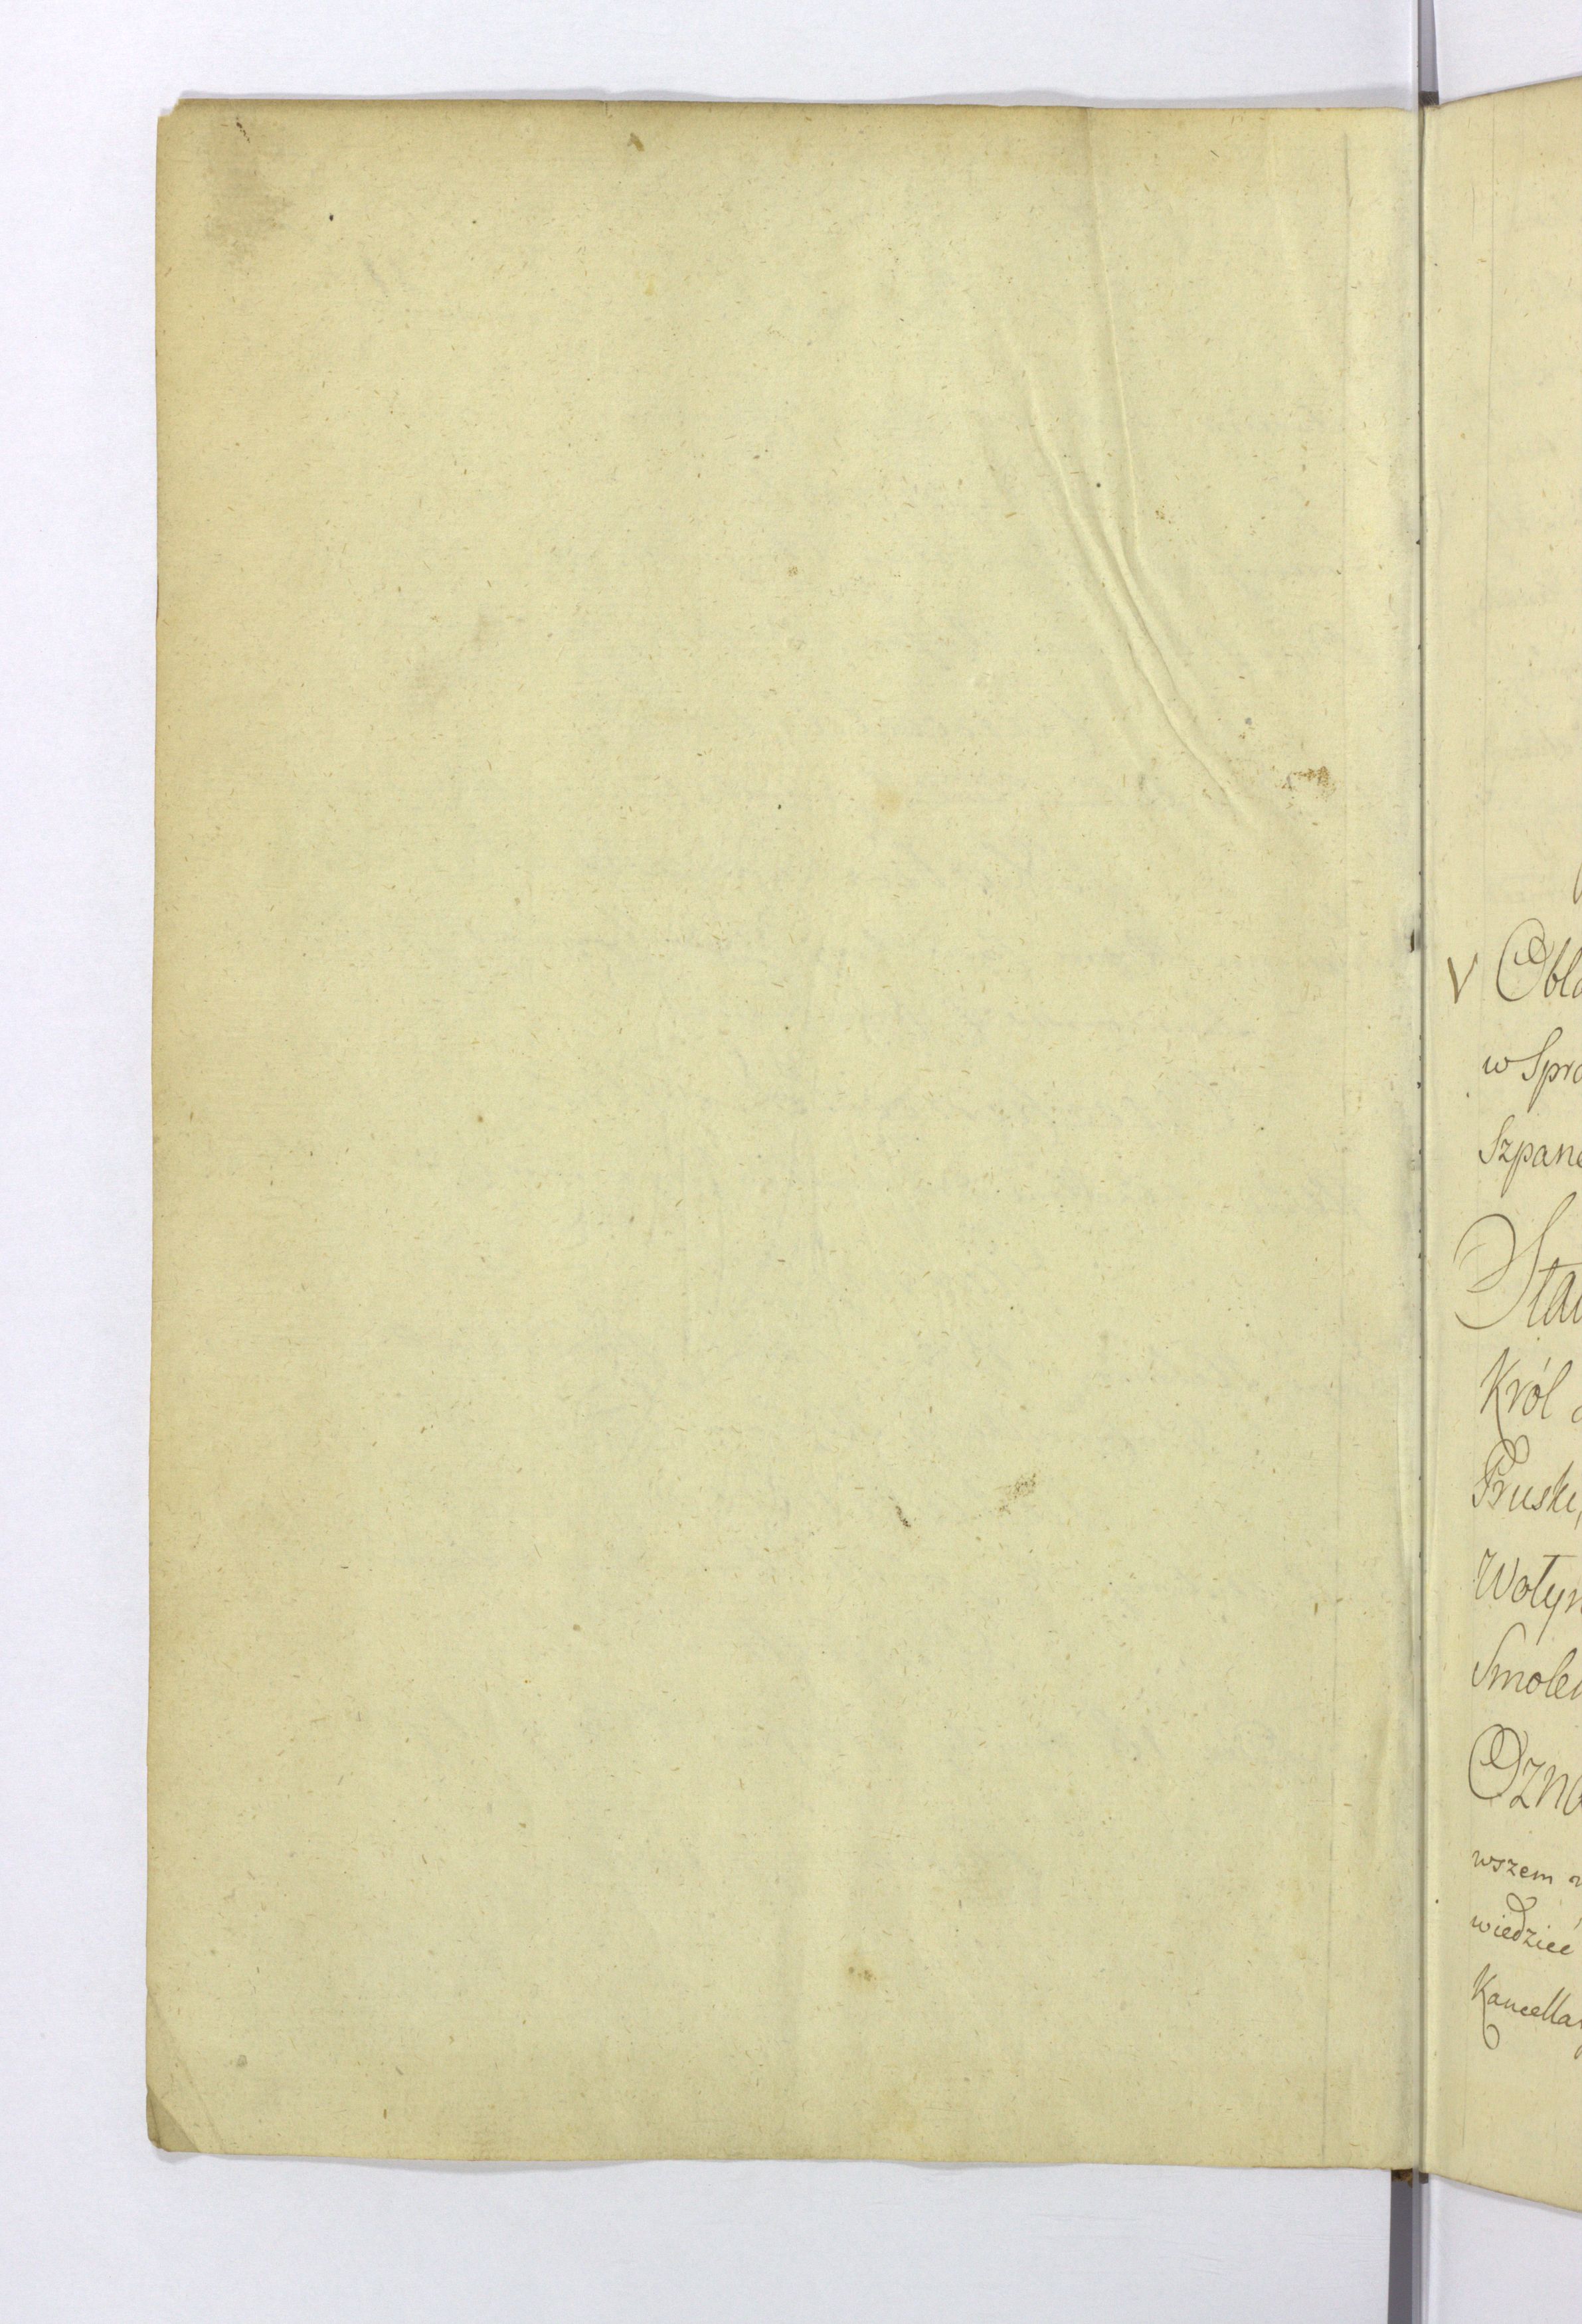 V Obla
w Spra
Szpane
Stan
Król
Pruski,
Wołyn
Smolen
Ozna
wszem
wiedzieć
Kancellar